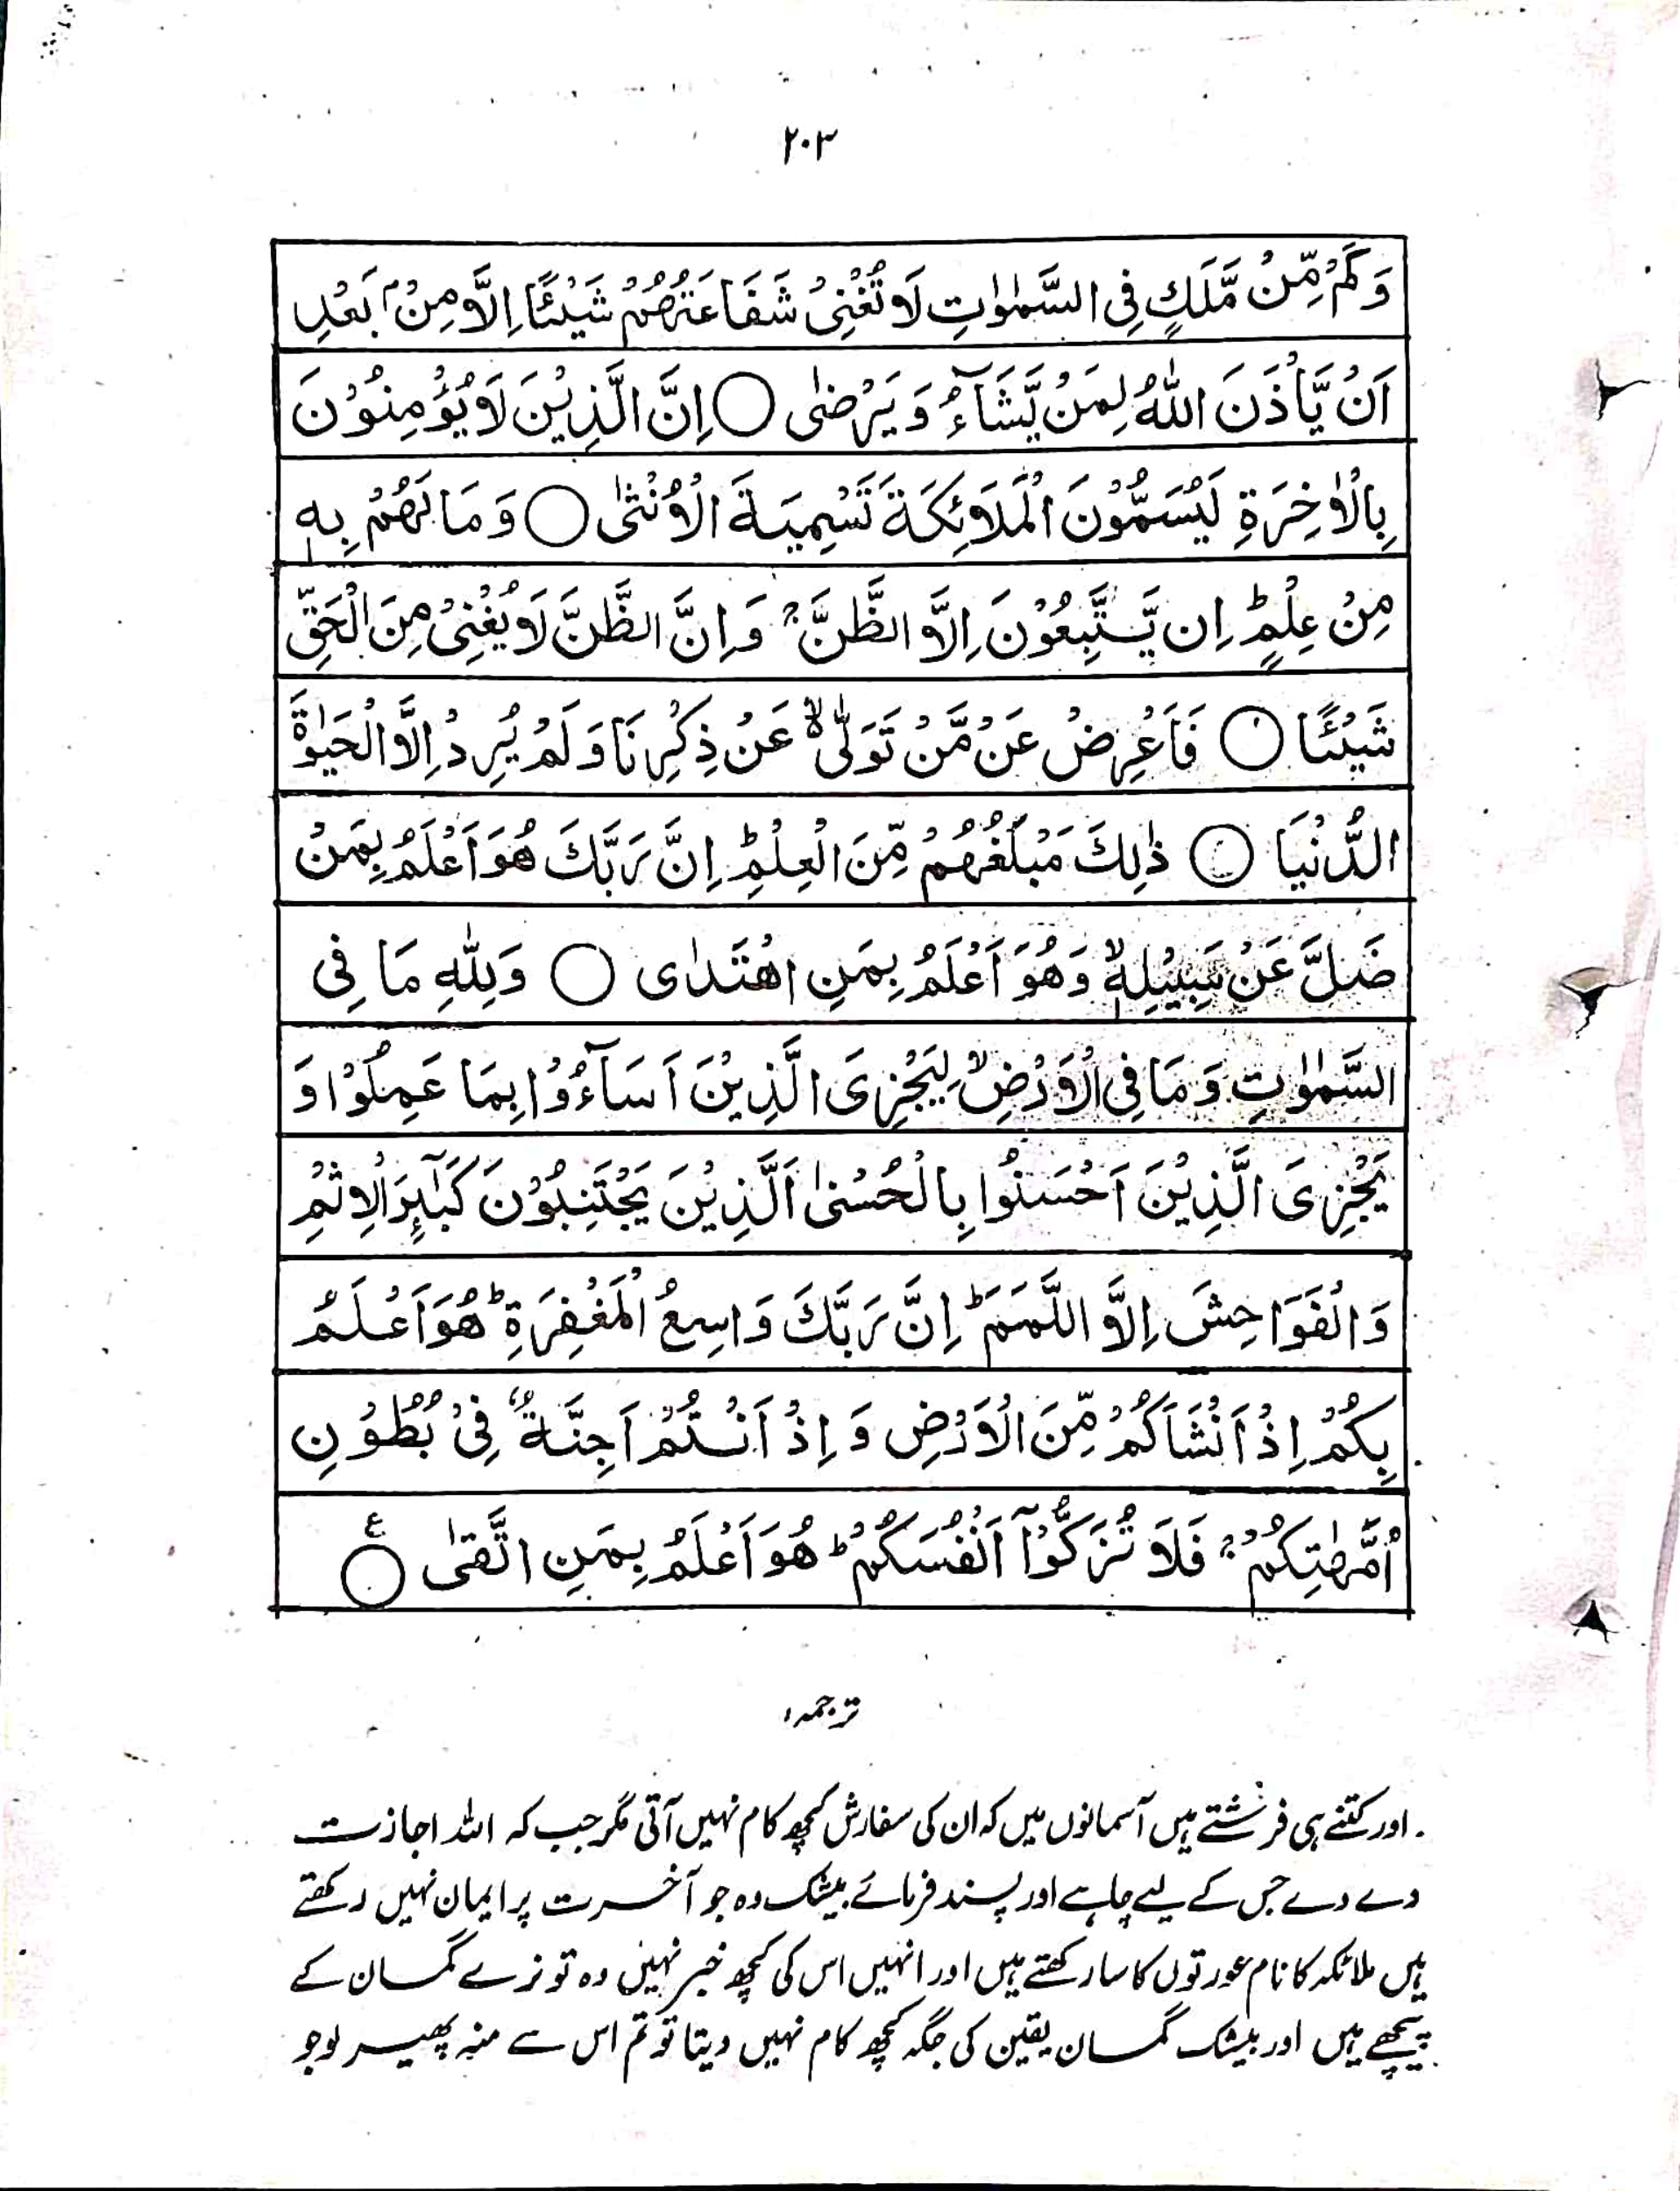 ۲۰۳
وَكَمْ مِّنْ مَّلَكٍ فِی السَّمٰوٰتِ لَا تُغْنِیْ شَفَاعَتُهُمْ شَیْئًا اِلَّا مِنْۢ بَعْدِ
اَنْ یَّاْذَنَ اللّٰهُ لِمَنْ یَّشَآءُ وَ یَرْضٰی ○ اِنَّ الَّذِیْنَ لَا یُؤْمِنُوْنَ
بِالْاٰخِرَةِ لَیُسَمُّوْنَ الْمَلَائِكَةَ تَسْمِیَةَ الْاُنْثٰی ○ وَ مَا لَهُمْ بِهٖ
مِنْ عِلْمٍ ؕ اِن یَّتَّبِعُوْنَ اِلَّا الظَّنَّ ۚ وَ اِنَّ الظَّنَّ لَا یُغْنِیْ مِنَ الْحَقِّ
شَیْئًا ○ فَاَعْرِضْ عَنْ مَّنْ تَوَلّٰی ۙ۬ عَنْ ذِكْرِنَا وَ لَمْ یُرِدْ اِلَّا الْحَیٰوةَ
الدُّنْیَا ○ ذٰلِكَ مَبْلَغُهُمْ مِّنَ الْعِلْمِ ؕ اِنَّ رَبَّكَ هُوَ اَعْلَمُ بِمَنْ
ضَلَّ عَنْ سَبِیْلِهٖ ۙ وَ هُوَ اَعْلَمُ بِمَنِ اهْتَدٰی ○ وَ لِلّٰهِ مَا فِی
السَّمٰوٰتِ وَ مَا فِی الْاَرْضِ ۙ لِیَجْزِیَ الَّذِیْنَ اَسَآءُوْا بِمَا عَمِلُوْا وَ
یَجْزِیَ الَّذِیْنَ اَحْسَنُوا بِالْحُسْنٰی اَلَّذِیْنَ یَجْتَنِبُوْنَ كَبٰٓىِٕرَ الْاِثْمِ
وَ الْفَوَاحِشَ اِلَّا اللَّمَمَ ؕ اِنَّ رَبَّكَ وَاسِعُ الْمَغْفِرَةِ ؕ هُوَ اَعْلَمُ
بِكُمْ اِذْ اَنْشَاَكُمْ مِّنَ الْاَرْضِ وَ اِذْ اَنْتُمْ اَجِنَّةٌ فِیْ بُطُوْنِ
اُمَّهٰتِكُمْ ۚ فَلَا تُزَكُّوْۤا اَنْفُسَكُمْ ؕ هُوَ اَعْلَمُ بِمَنِ اتَّقٰی ○ ع
ترجمہ:
اور کتنے ہی فرشتے ہیں آسمانوں میں کہ ان کی سفارش کچھ کام نہیں آتی مگر جب کہ اللہ اجازت
دے دے جس کے لیے چاہے اور پسند فرمائے بیشک وہ جو آخرت پر ایمان نہیں رکھتے
ہیں ملائکہ کا نام عورتوں کا سا رکھتے ہیں اور انہیں اس کی کچھ خبر نہیں وہ تو نرے گمان کے
پیچھے ہیں اور بیشک گمان یقین کی جگہ کچھ کام نہیں دیتا تو تم اس سے منہ پھیر لو جو